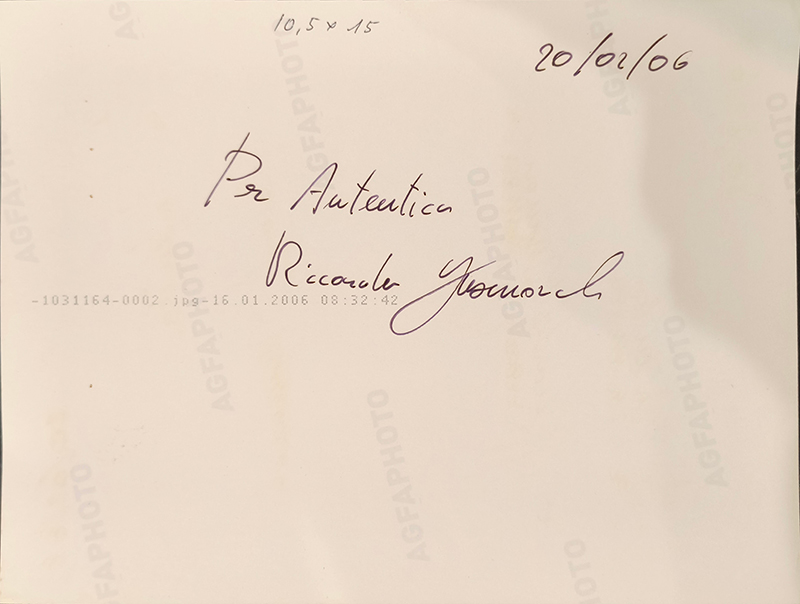 10,5 x 15
20/02/06
Per Autentica
Riccardo Gusmaroli
-1031164-0002.jpg-16.01.2006 08:32:42
AGFAPHOTO
AGFAPHOTO
AGFAPHOTO
AGFAPHOTO
AGFAPHOTO